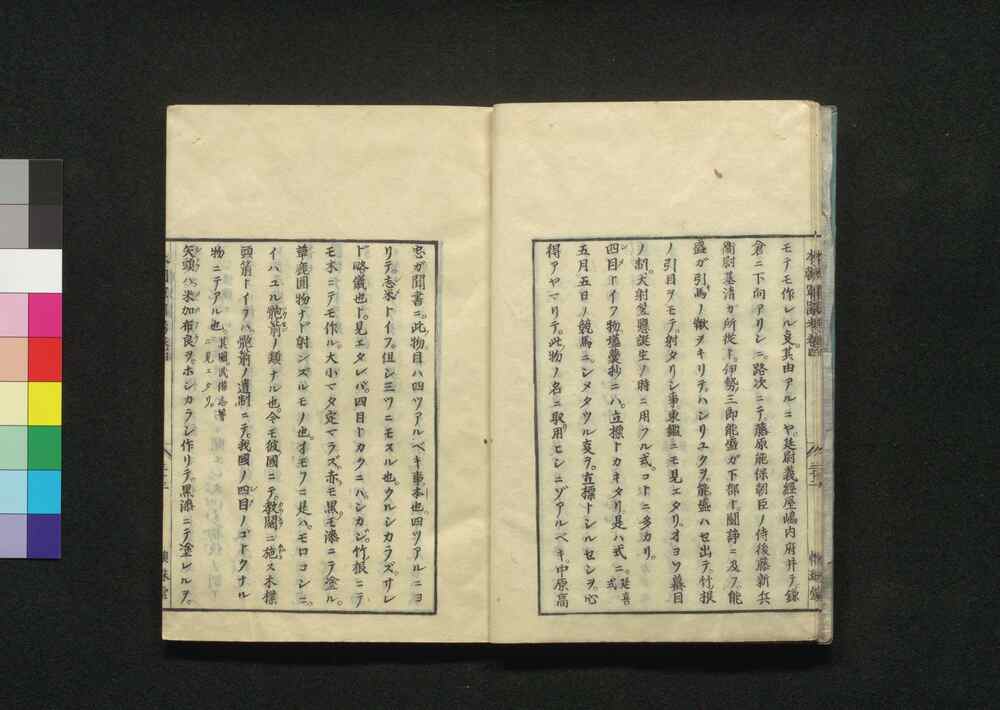 モテモ作レル叓其由アルニヤ。廷尉義經屋嶋内府井テ鎌
倉ニ下向アリシニ。路次ニテ藤原能保朝臣ノ侍後藤新兵
衞尉基清ガ所從ト。伊勢三郎能盛ガ下部ト鬪諍ニ及フ能
盛ガ引馬ノ鞦ヲキリテ。ハシリユクヲ。能盛ハセ出テ竹根
ノ引目ヲモテ。射タリシ事東鑑ニモ見エタリ。オヨソ蟇目
ノ制。犬射笠懸誕生ノ時ニ用フル式。コトニ多カリ。
四目トイフ物壒囊抄ニハ。立標トカキタリ是ハ式ニ。延喜式
五月五日ノ競馬ニシメタツル叓ヲ。立標トシルセシヲ。心
得アヤマリテ。此物ノ名ニ取用ヒシニゾアルベキ。中原高
忠ガ聞書ニ。此物目ハ四ツアルベキ事本也。四ツアルニヨ
リテ。志米トイフ。但シ三ツニモスル也。ウルシカラズサレ
ト略儀也ト。見エタレバ。四目トカクニハシカジ。竹根ニテ
モ木ニテモ作ル。大小マタ定マラズ。赤モ黒モ漆ニテ塗ル。
韋緹圓物ナド射ンズルモノ也。オモフニ是ハ。モロコシニ。
イハユル骲箭ノ類ナル也。今モ彼國ニテ。教閲ニ施ス木標
頭箭トイフハ。骲箭ノ遺制ニテ。我國ノ四目ノゴトクナル
物ニテアル也。其圖武備志等ニ見エタリ。
矢頭ハ米加布良ヲ。ホシカラシ作リテ。黒漆ニテ塗レルヲ。